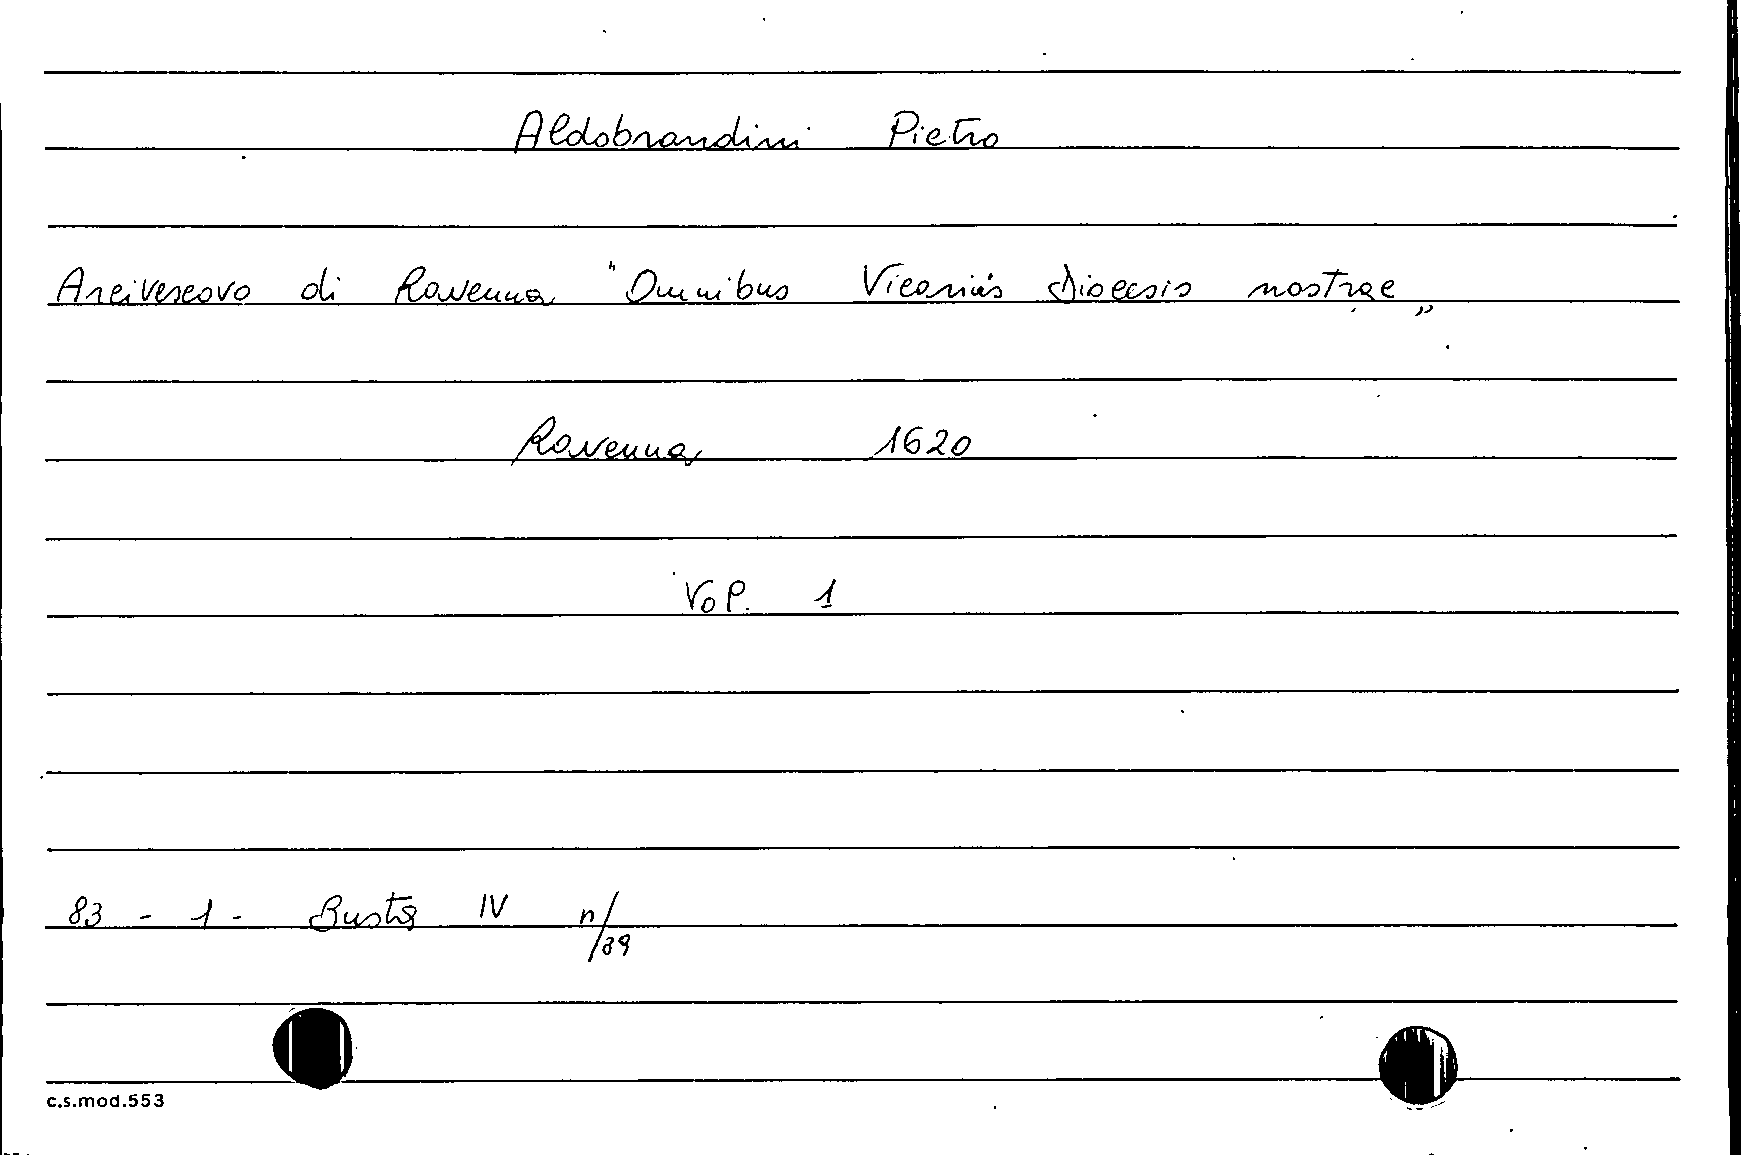 Aldobrandini Pietro
Arcivescovo di Ravenna "Omnibus Vicariis Dioecsis nostrae„
Ravenna 1620
Vol. 1
83 - 1 - Busta IV n/39
c.s.mod.553